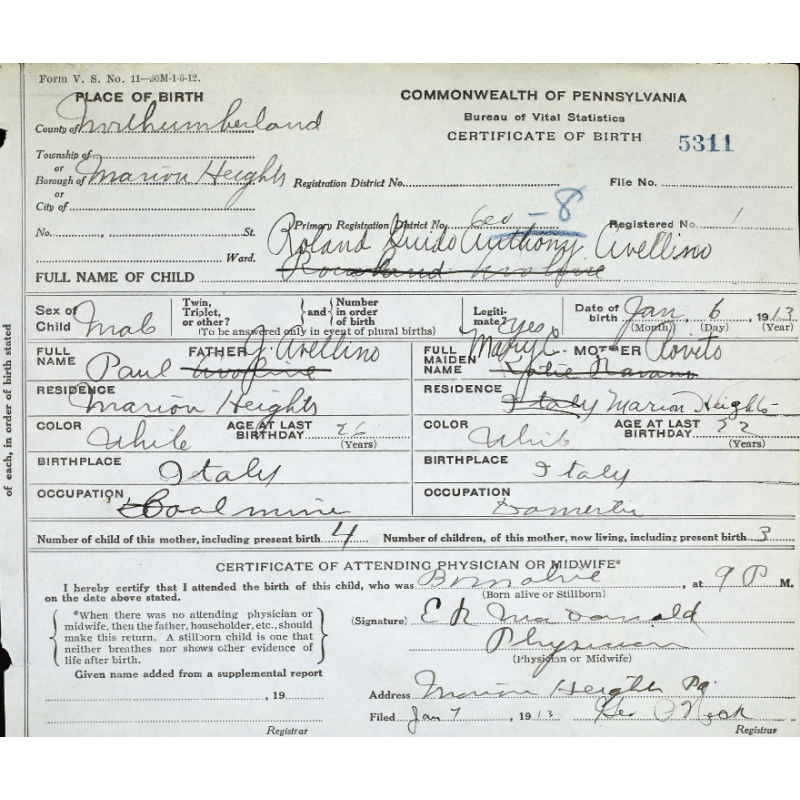 Form V. S. No. 11—50M-1-5-12.
PLACE OF BIRTH
County of Northumberland
Township of
or
Borough of Marion Heights
or
City of
No. , St.
Ward.
COMMONWEALTH OF PENNSYLVANIA
Bureau of Vital Statistics
CERTIFICATE OF BIRTH
5311
Registration District No.
File No.
Primary Registration District No. -8
Registered No. 1
Roland Guido Anthony Avellino
FULL NAME OF CHILD
Sex of Child Male
Twin, Triplet, or other?
and
Number in order of birth
(To be answered only in event of plural births)
Legitimate? Yes
Date of birth Jan. 6, 1913
(Month) (Day) (Year)
FULL NAME FATHER Paul J. Avellino
FULL MAIDEN NAME MOTHER Mary C. Rovito
Katie
RESIDENCE Marion Heights
RESIDENCE Italy Marion Heights
COLOR White
AGE AT LAST BIRTHDAY 26
(Years)
COLOR White
AGE AT LAST BIRTHDAY 22
(Years)
BIRTHPLACE Italy
BIRTHPLACE Italy
OCCUPATION Coal mine
OCCUPATION Domestic
Number of child of this mother, including present birth 4
Number of children, of this mother, now living, including present birth 3
of each, in order of birth stated
CERTIFICATE OF ATTENDING PHYSICIAN OR MIDWIFE*
I hereby certify that I attended the birth of this child, who was Born alive, at 9 P M.
on the date above stated.
(Born alive or Stillborn)
*When there was no attending physician or
midwife, then the father, householder, etc., should
make this return. A stillborn child is one that
neither breathes nor shows other evidence of
life after birth.
(Signature) E R MacDonald
Physician
(Physician or Midwife)
Given name added from a supplemental report
, 19
Registrar
Address Marion Heights Pa.
Filed Jan 7, 1913 Geo
Registrar